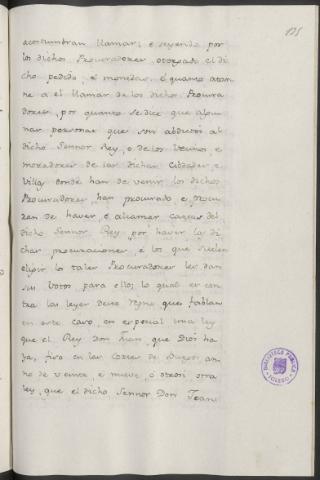 135
acostumbran llamar; e seyendo por
los dichos Procuradores otorgado el di
cho pedido, e monedas. é quanto atan
ne a el llamar de los dichos Procura
dores, por quanto se dice que algu
nas personas que son abdutos al
dicho Sennor Rey, e de los Vecinos e
moradores de las dichas Cibdades e
Villas donde han de venir los dichos
Procuradores, han procurado e, procu
ran de haver, é alcanzar cartas del
dicho Sennor Rey, por haver las di
chas procuraciones, é los que suelen
elegir los tales Procuradores les dan
sus votos para ello; lo qual es con
tra las leyes deste regno que fablan
en este caso, en especial una ley
que el Rey Don Juan, que Dios ha
ya, fizo en las Cortes de Burgos an
no de veinte, e nueve, é otrosi otra
ley, que el dicho Sennor Don Juan
BIBLIOTECA PUBLICA
TOLEDO